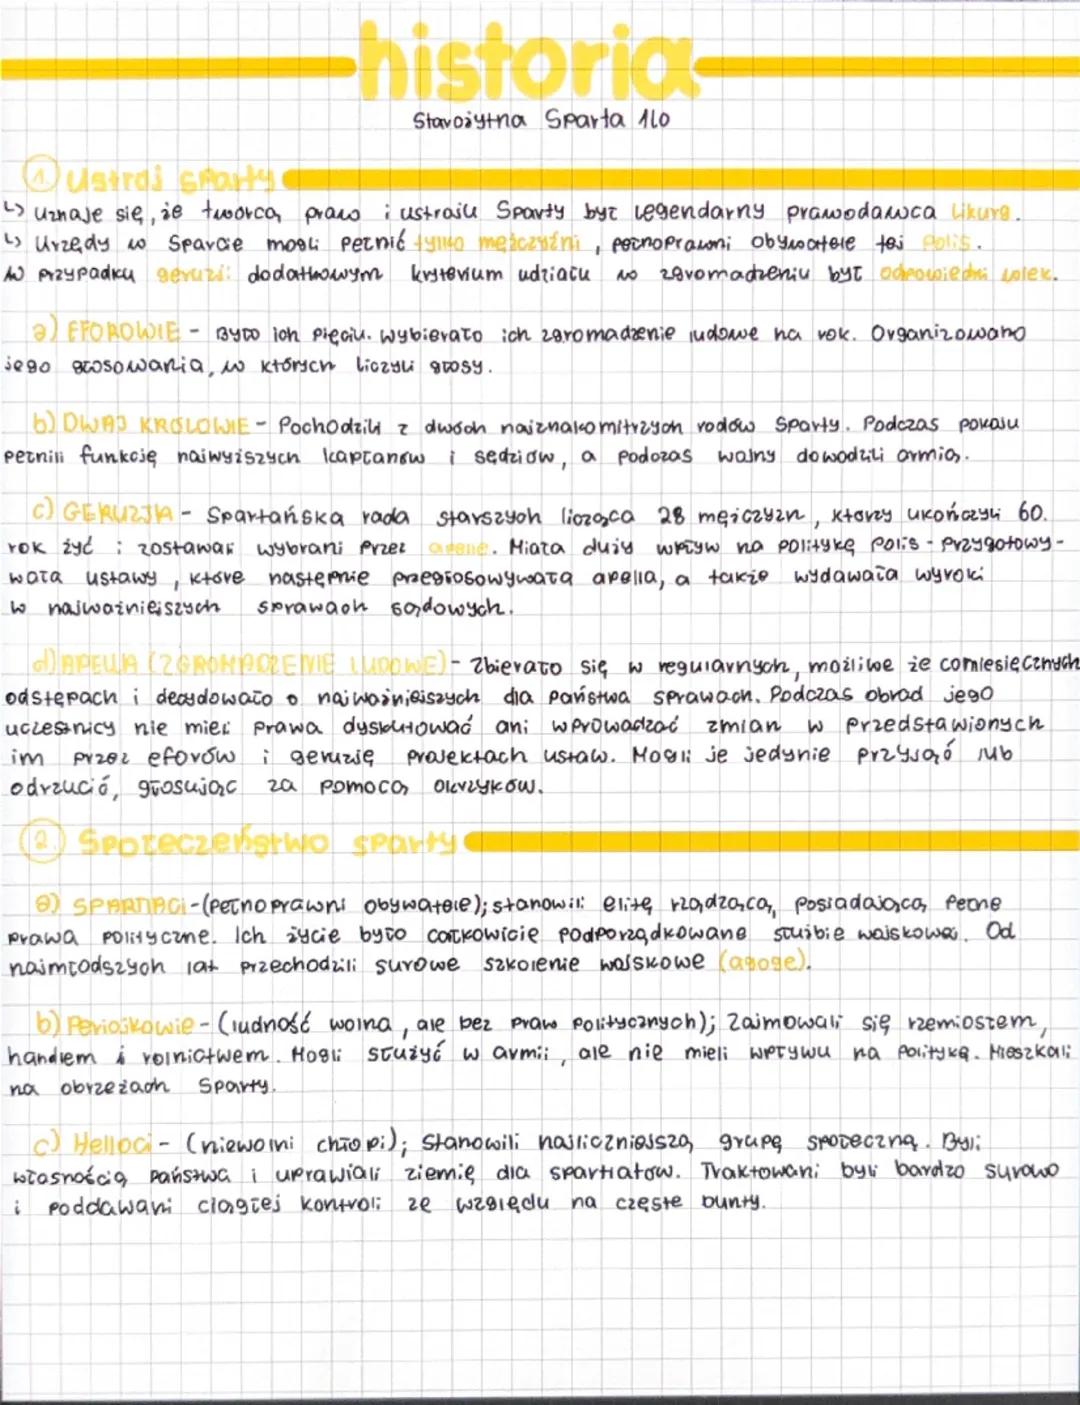 historia
Starożytna Sparta 1LO
1. Ustrój Sparty
↳ Uznaje się, że twórcą praw i ustroju Sparty był legendarny prawodawca Likurg.
↳ Urzędy w Sparcie mogli pełnić tylko mężczyźni, pełnoprawni obywatele tej Polis.
W przypadku geruzji: dodatkowym kryterium udziału w zgromadzeniu był odpowiedni wiek.
a) EFOROWIE - Było ich pięciu. Wybierało ich zgromadzenie ludowe na rok. Organizowano
jego głosowania, w których liczyli głosy.
b) DWAJ KRÓLOWIE - Pochodzili z dwóch najznakomitrzych rodów Sparty. Podczas pokoju
pełnili funkcję najwyższych kapłanów i sędziów, a podczas wojny dowodzili armią.
c) GERUZJA - Spartańska rada starszych licząca 28 mężczyzn, którzy ukończyli 60.
rok żyć i zostawali wybrani przez apelle. Miała duży wpływ na politykę polis - przygotowy-
wała ustawy, które następnie przegłosowywała apella, a także wydawała wyroki
w najważniejszych sprawach sądowych.
d) APELLA (ZGROMADZENIE LUDOWE) - Zbierało się w regularnych, możliwe że comiesięcznych
odstępach i decydowało o najważniejszych dla państwa sprawach. Podczas obrad jego
uczesnicy nie mieli prawa dyskutować ani wprowadzać zmian w przedstawionych
im przez eforów i geruzję projektach ustaw. Mogli je jedynie przyjąć lub
odrzucić, głosując za pomocą okrzyków.
2. Społeczeństwo Sparty
a) SPARTIACI - (pełnoprawni obywatele); stanowili elitę rządzącą, posiadającą pełne
prawa polityczne. Ich życie było całkowicie podporządkowane służbie wojskowej. Od
najmłodszych lat przechodzili surowe szkolenie wojskowe (agoge).
b) Periojkowie - (ludność wolna, ale bez praw politycznych); Zajmowali się rzemiosłem,
handlem i rolnictwem. Mogli służyć w armii, ale nie mieli wpływu na politykę. Mieszkali
na obrzeżach Sparty.
c) Helloci - (niewolni chłopi); Stanowili najliczniejszą grupę społeczną. Byli
własnością państwa i uprawiali ziemię dla spartiatów. Traktowani byli bardzo surowo
i poddawani ciągłej kontroli ze względu na częste bunty.